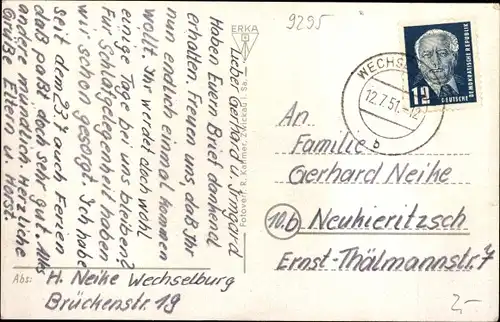 9295
Lieber Gerhard u. Irmgard
Haben Euern Brief dankend
erhalten. Freuen uns, daß Ihr
nun endlich einmal kommen
wollt. Ihr werdet doch wohl
einige Tage bei uns bleiben?
Für Schlafgelegenheit haben
wir schon gesorgt. Ich habe
seit dem 23.7 auch Ferien
daß paßt doch sehr gut. Alles
andere mündlich. Herzliche
Grüße Eltern u. Horst.
Abs: H. Neike Wechselburg
Brückenstr. 19
ERKA
Fotoverl. R. Kallmer, Zwickau i. Sa.
WECHS
12.7.51.-12
b
12
DEUTSCHE
DEMOKRATISCHE REPUBLIK
An
Familie
Gerhard Neike
10b Neukieritzsch
Ernst-Thälmannstr. 7
2,-